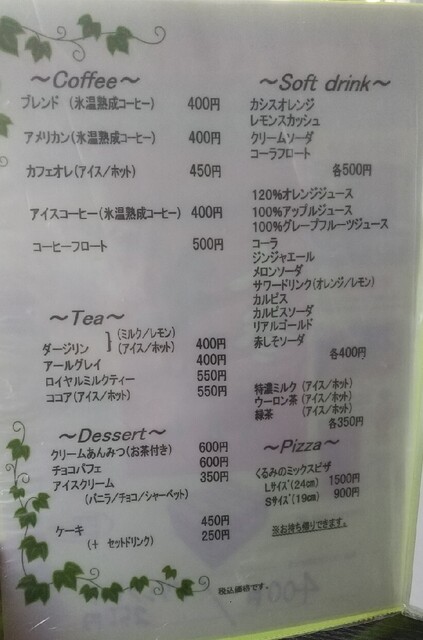 ～Coffee～
ブレンド (氷温熟成コーヒー) 400円
アメリカン(氷温熟成コーヒー) 400円
カフェオレ(アイス/ホット) 450円
アイスコーヒー(氷温熟成コーヒー) 400円
コーヒーフロート 500円
～Tea～
(ミルク/レモン)
ダージリン (アイス/ホット) 400円
アールグレイ 400円
ロイヤルミルクティー 550円
ココア(アイス/ホット) 550円
～Dessert～
クリームあんみつ(お茶付き) 600円
チョコパフェ 600円
アイスクリーム 350円
(バニラ/チョコ/シャーベット)
ケーキ 450円
(+ セットドリンク) 250円
～Soft drink～
カシスオレンジ
レモンスカッシュ
クリームソーダ
コーラフロート
各500円
120%オレンジジュース
100%アップルジュース
100%グレープフルーツジュース
コーラ
ジンジャエール
メロンソーダ
サワードリンク(オレンジ/レモン)
カルピス
カルピスソーダ
リアルゴールド
赤しそソーダ
各400円
特濃ミルク (アイス/ホット)
ウーロン茶 (アイス/ホット)
緑茶 (アイス/ホット)
各350円
～Pizza～
くるみのミックスピザ
Lサイズ(24cm) 1500円
Sサイズ(19cm) 900円
※お持ち帰りできます。
税込価格です。